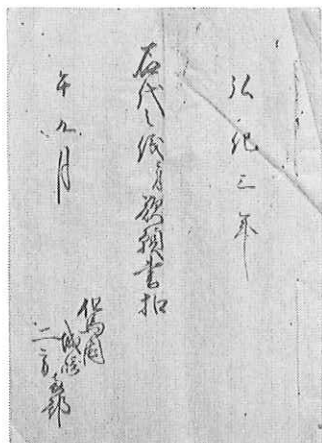 弘化三年
石代之儀ニ付歎願書扣
午九月
但馬国
城崎
二方 郡